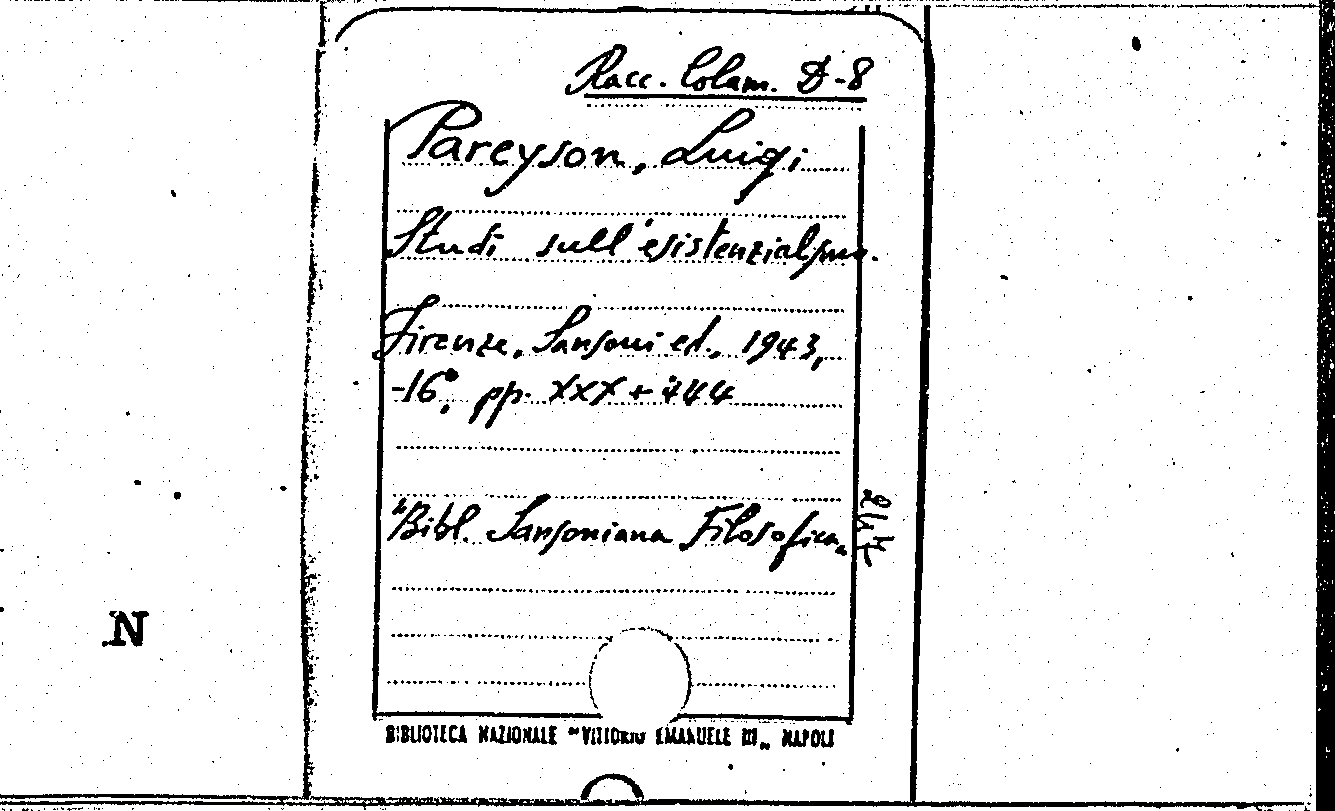 Racc. Colam. D-8
Pareyson, Luigi
Studi sull'esistenzialismo.
Firenze, Sansoni ed., 1943,
-16°, pp. XXX+444
"Bibl. Sansoniana Filosofica"
BIBLIOTECA NAZIONALE "VITTORIO EMANUELE III" NAPOLI
N